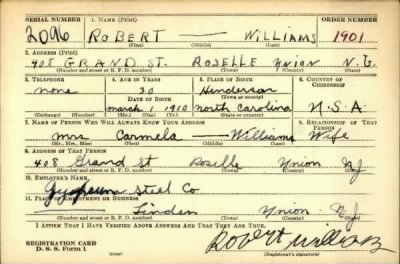 SERIAL NUMBER 1. NAME (Print) ORDER NUMBER
2096 ROBERT — WILLIAMS 1901
(First) (Middle) (Last)
2. ADDRESS (Print)
408 GRAND ST. ROSELLE UNION N.J.
(Number and street or R. F. D. number) (Town) (County) (State)
3. TELEPHONE 4. AGE IN YEARS 5. PLACE OF BIRTH 6. COUNTRY OF CITIZENSHIP
none 30 Henderson
DATE OF BIRTH (Town or county)
March 1, 1910 North Carolina U.S.A.
(Exchange) (Number) (Mo.) (Day) (Yr.) (State or country)
7. NAME OF PERSON WHO WILL ALWAYS KNOW YOUR ADDRESS 8. RELATIONSHIP OF THAT PERSON
Mrs Carmela — Williams Wife
(Mr., Mrs., Miss) (First) (Middle) (Last)
9. ADDRESS OF THAT PERSON
408 Grand St Roselle Union NJ
(Number and street or R. F. D. number) (Town) (County) (State)
10. EMPLOYER'S NAME
Steel Co
11. PLACE OF EMPLOYMENT OR BUSINESS
— Linden Union NJ
(Number and street or R. F. D. number) (Town) (County) (State)
I AFFIRM THAT I HAVE VERIFIED ABOVE ANSWERS AND THAT THEY ARE TRUE.
REGISTRATION CARD
D. S. S. Form 1 (over) Robert Williams
(Registrant's signature)